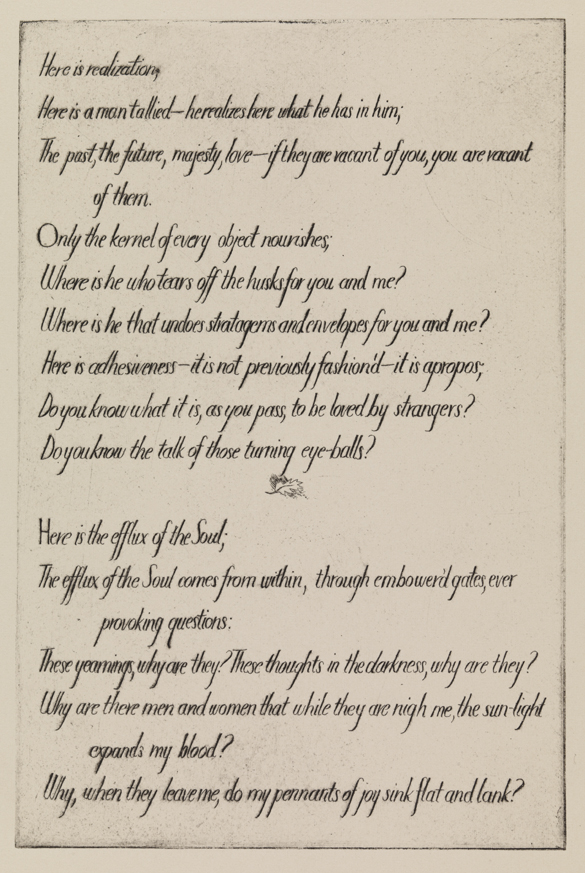 Here is realization;
Here is a man tallied—he realizes here what he has in him;
The past, the future, majesty, love—if they are vacant of you, you are vacant
of them.
Only the kernel of every object nourishes;
Where is he who tears off the husks for you and me?
Where is he that undoes stratagems and envelopes for you and me?
Here is adhesiveness—it is not previously fashion'd—it is apropos;
Do you know what it is, as you pass, to be loved by strangers?
Do you know the talk of those turning eye-balls?
Here is the efflux of the Soul;
The efflux of the Soul comes from within, through embower'd gates, ever
provoking questions:
These yearnings, why are they? These thoughts in the darkness, why are they?
Why are there men and women that while they are nigh me, the sun-light
expands my blood?
Why, when they leave me, do my pennants of joy sink flat and lank?